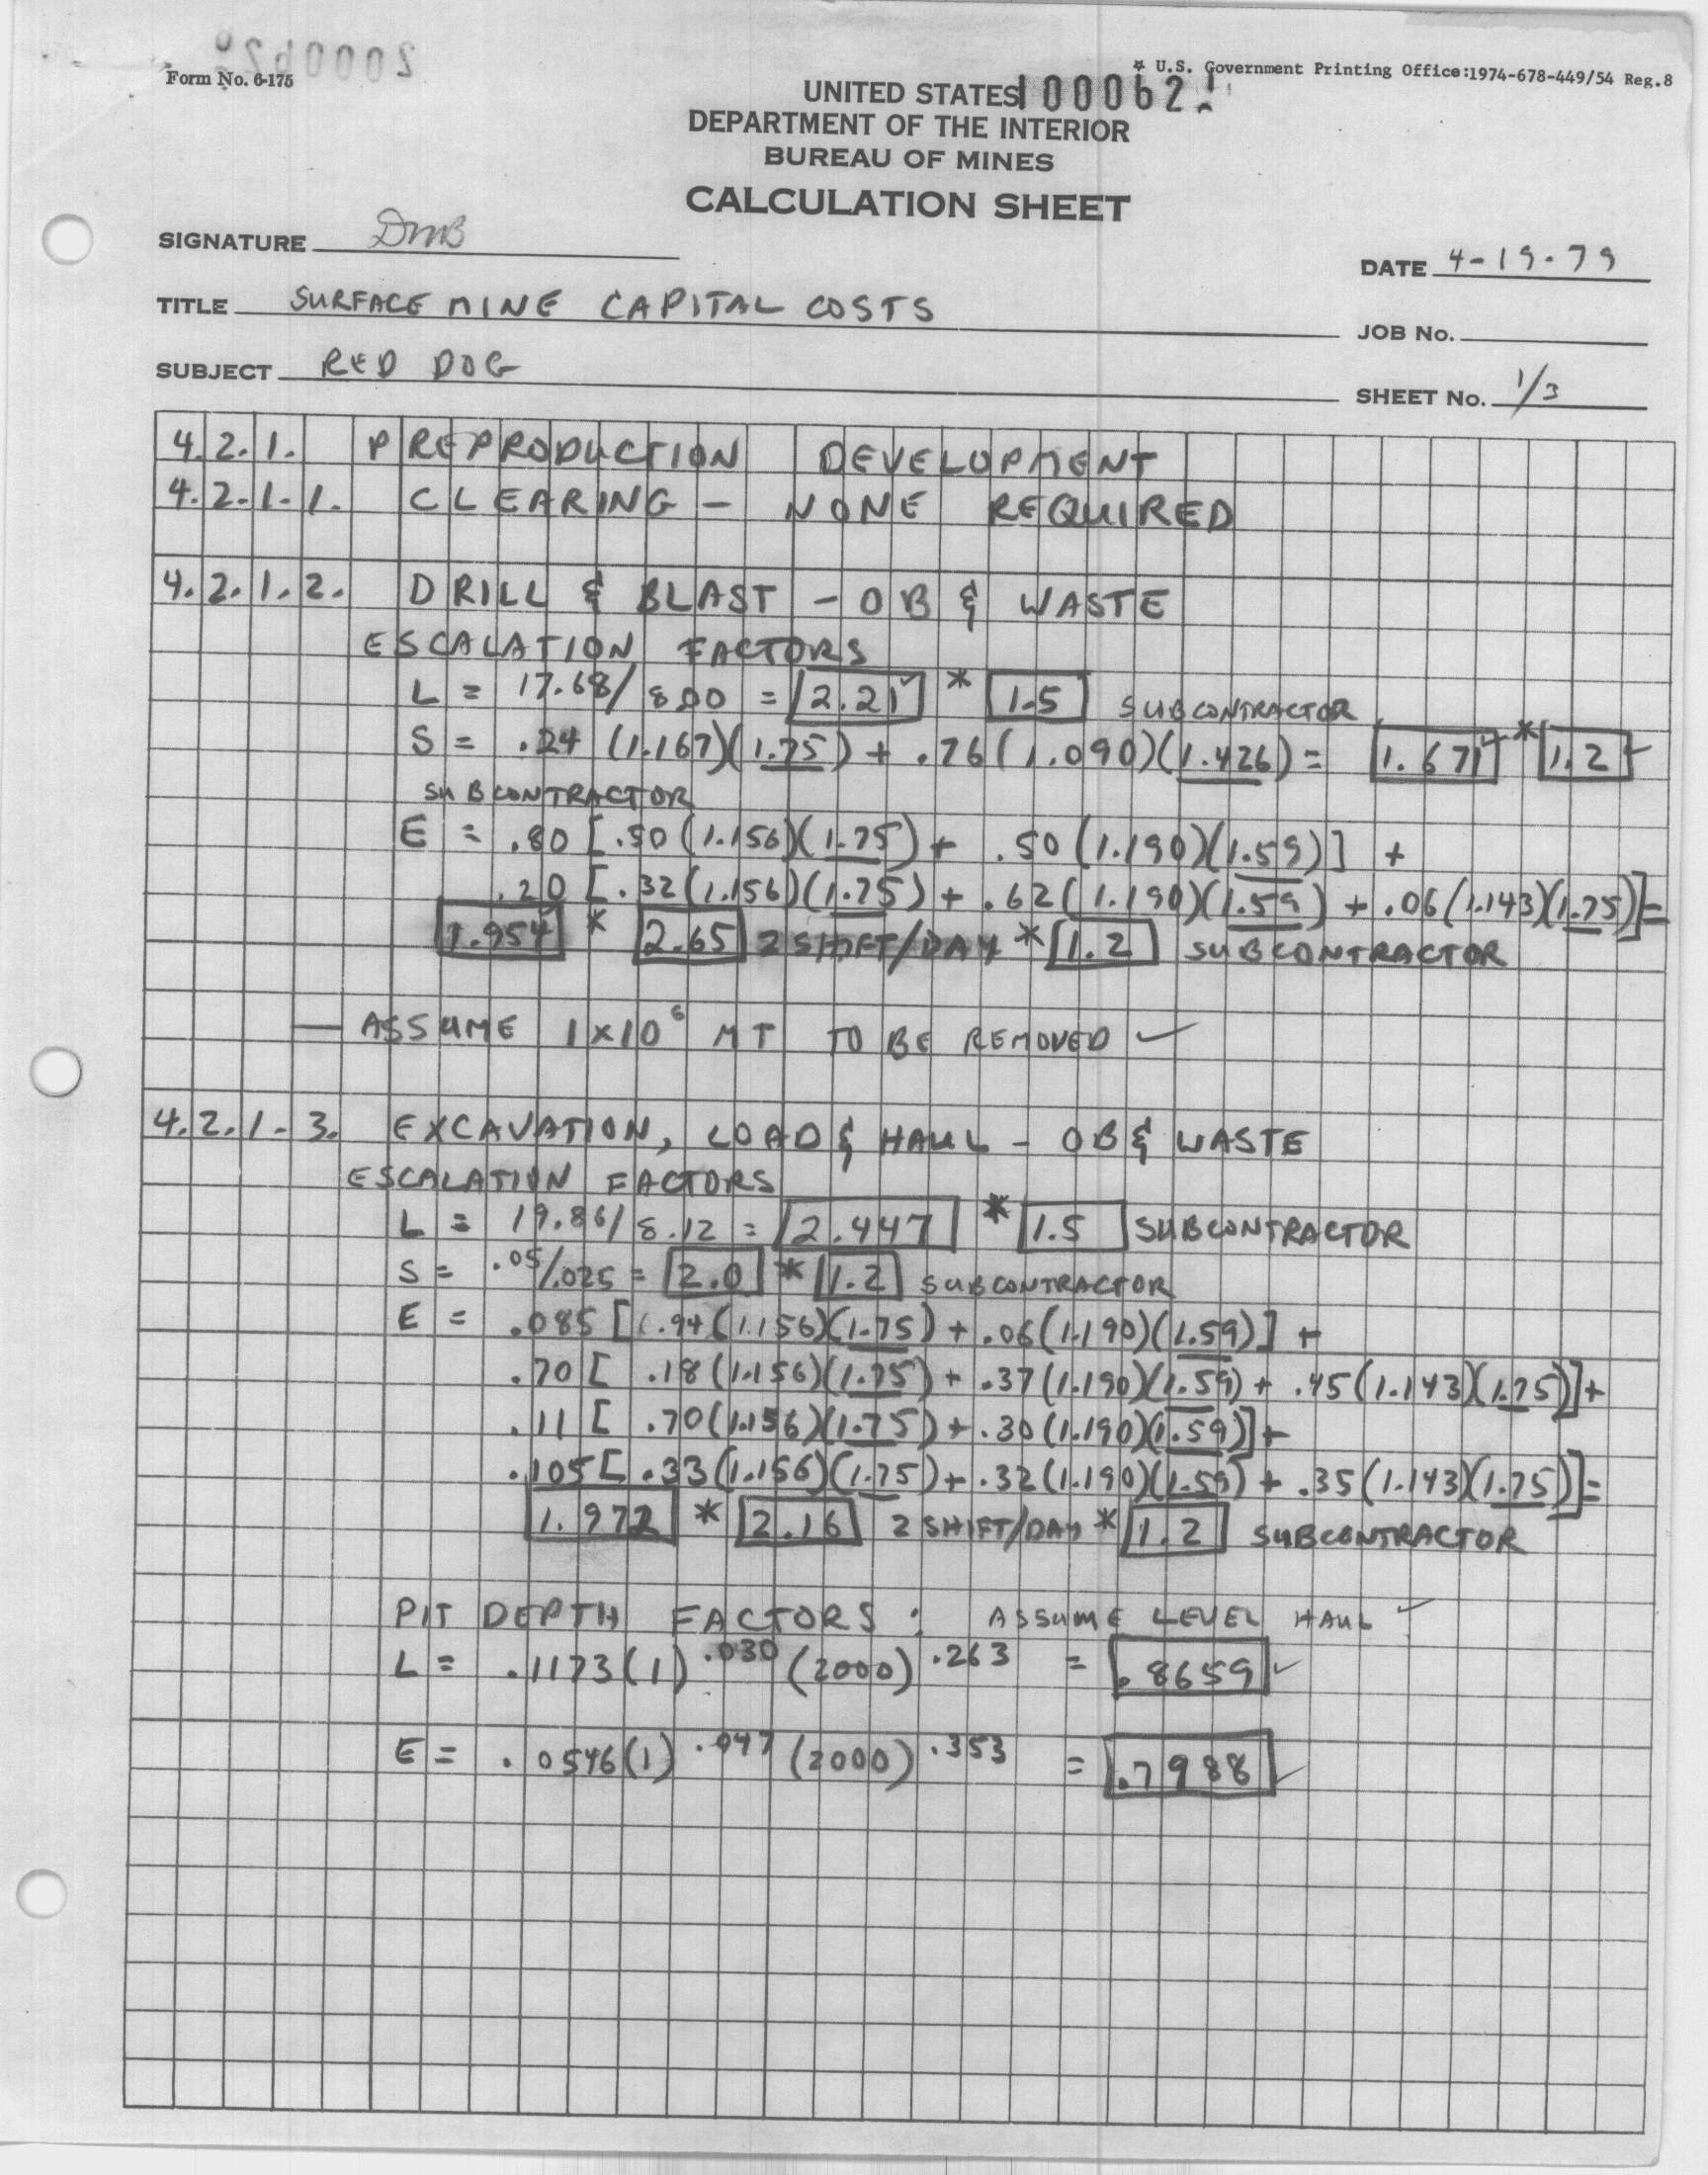 Form No. 6-175
* U.S. Government Printing Office:1974-678-449/54 Reg.8
UNITED STATES
DEPARTMENT OF THE INTERIOR
BUREAU OF MINES
CALCULATION SHEET
SIGNATURE DMB
DATE 4-19-79
TITLE SURFACE MINE CAPITAL COSTS
JOB No.
SUBJECT RED DOG
SHEET No. 1/3
4.2.1. PREPRODUCTION DEVELOPMENT
4.2.1.1. CLEARING - NONE REQUIRED
4.2.1.2. DRILL & BLAST - OB & WASTE
ESCALATION FACTORS
L = 17.68/8.00 = 2.21 * 1.5 SUBCONTRACTOR
S = .24 (1.167)(1.75) + .76(1.090)(1.426) = 1.671 * 1.2
SUBCONTRACTOR
E = .80 [.50 (1.156)(1.75) + .50 (1.190)(1.59)] +
.20 [.32(1.156)(1.75) + .62(1.190)(1.59) + .06(1.143)(1.75)]=
1.954 * 2.65 2 SHIFT/DAY * 1.2 SUBCONTRACTOR
— ASSUME 1×10⁶ MT TO BE REMOVED ✓
4.2.1.3. EXCAVATION, LOAD & HAUL - OB & WASTE
ESCALATION FACTORS
L = 19.86/8.12 = 2.447 * 1.5 SUBCONTRACTOR
S = .05/.025 = 2.0 * 1.2 SUBCONTRACTOR
E = .085 [.94(1.156)(1.75) + .06(1.190)(1.59)] +
.70 [ .18(1.156)(1.75) + .37(1.190)(1.59) + .45(1.143)(1.75)]+
.11 [ .70(1.156)(1.75) + .30(1.190)(1.59)]+
.105[ .33(1.156)(1.75) + .32(1.190)(1.59) + .35(1.143)(1.75)]=
1.972 * 2.16 2 SHIFT/DAY * 1.2 SUBCONTRACTOR
PIT DEPTH FACTORS : ASSUME LEVEL HAUL ✓
L = .1173(1)^.030 (2000)^.263 = .8659 ✓
E = .0546(1)^.047 (2000)^.353 = .7988 ✓